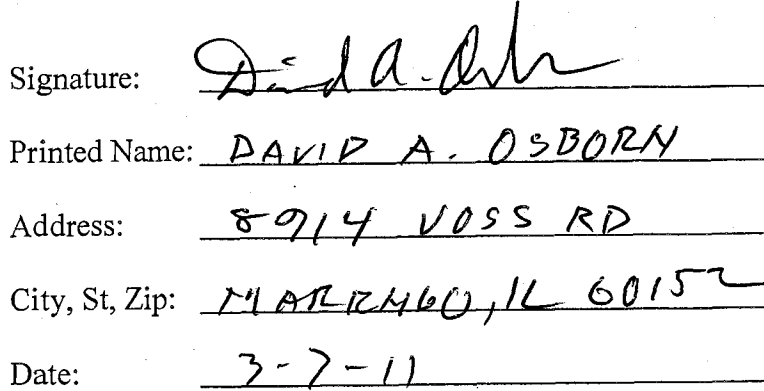 Signature: David A. Osborn
Printed Name: DAVID A. OSBORN
Address: 8914 VOSS RD
City, St, Zip: MARENGO, IL 60152
Date: 3-7-11